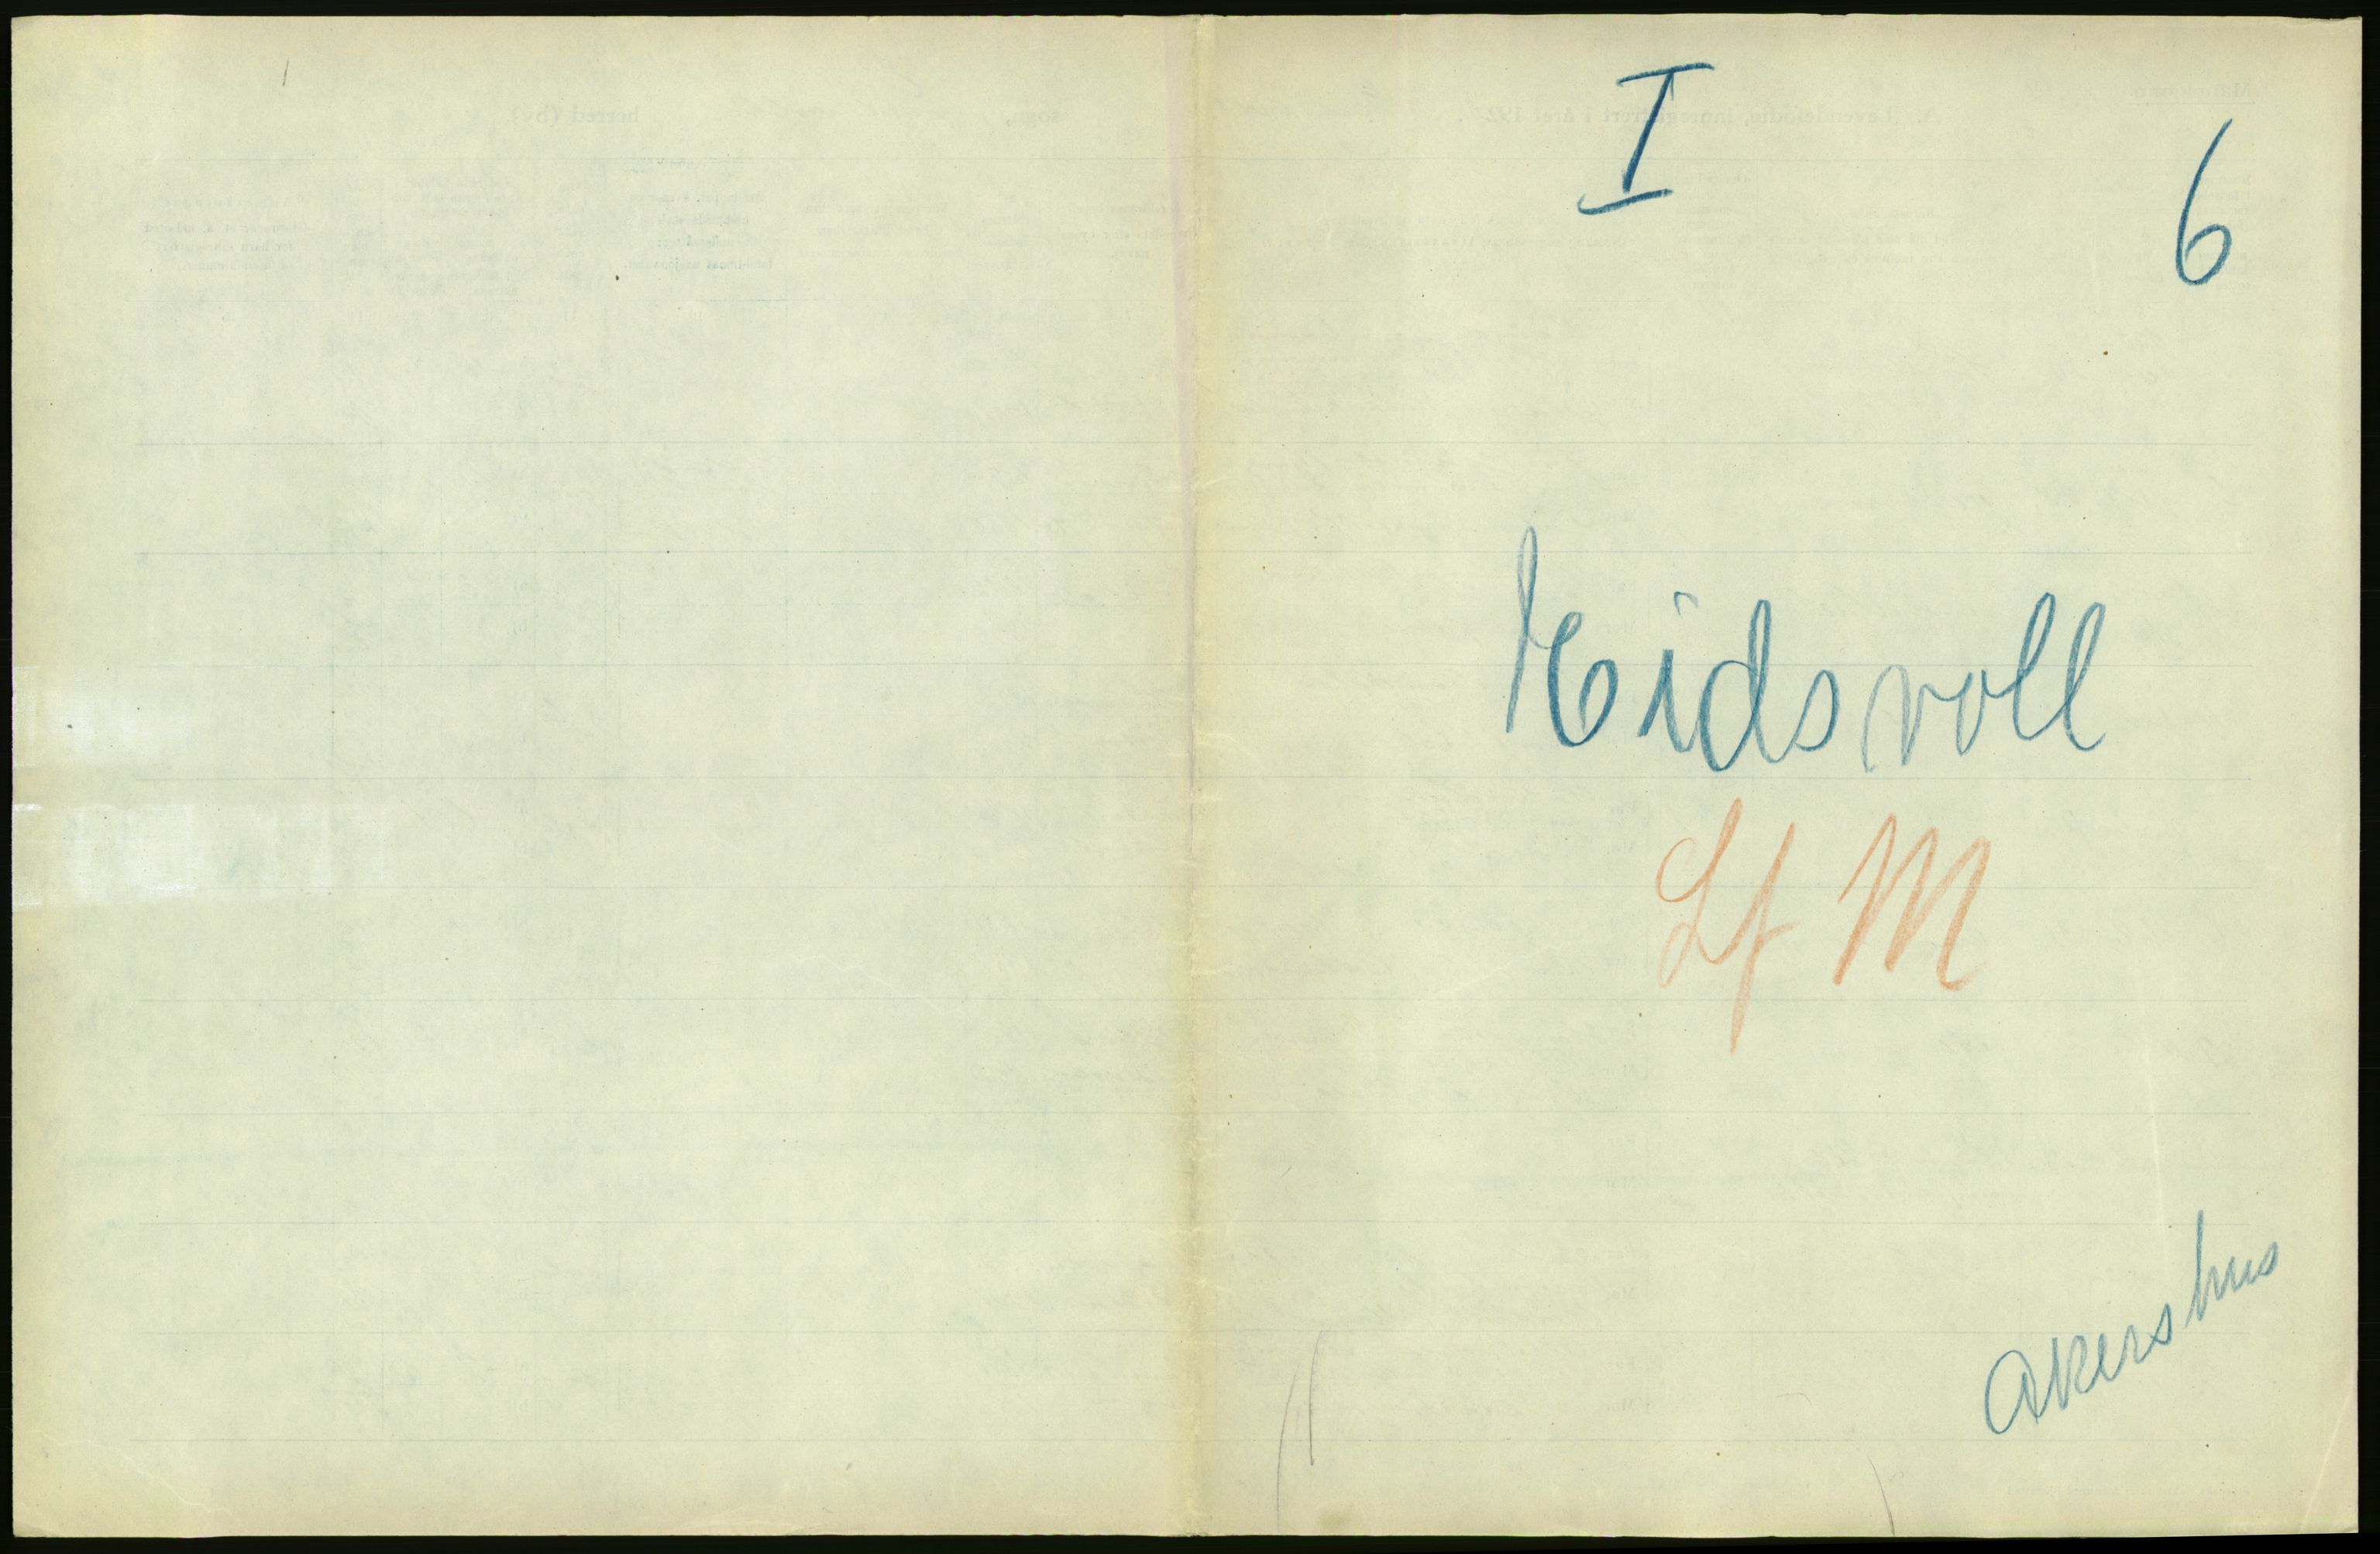 I
6
Eidsvoll
Lf M
Akershus